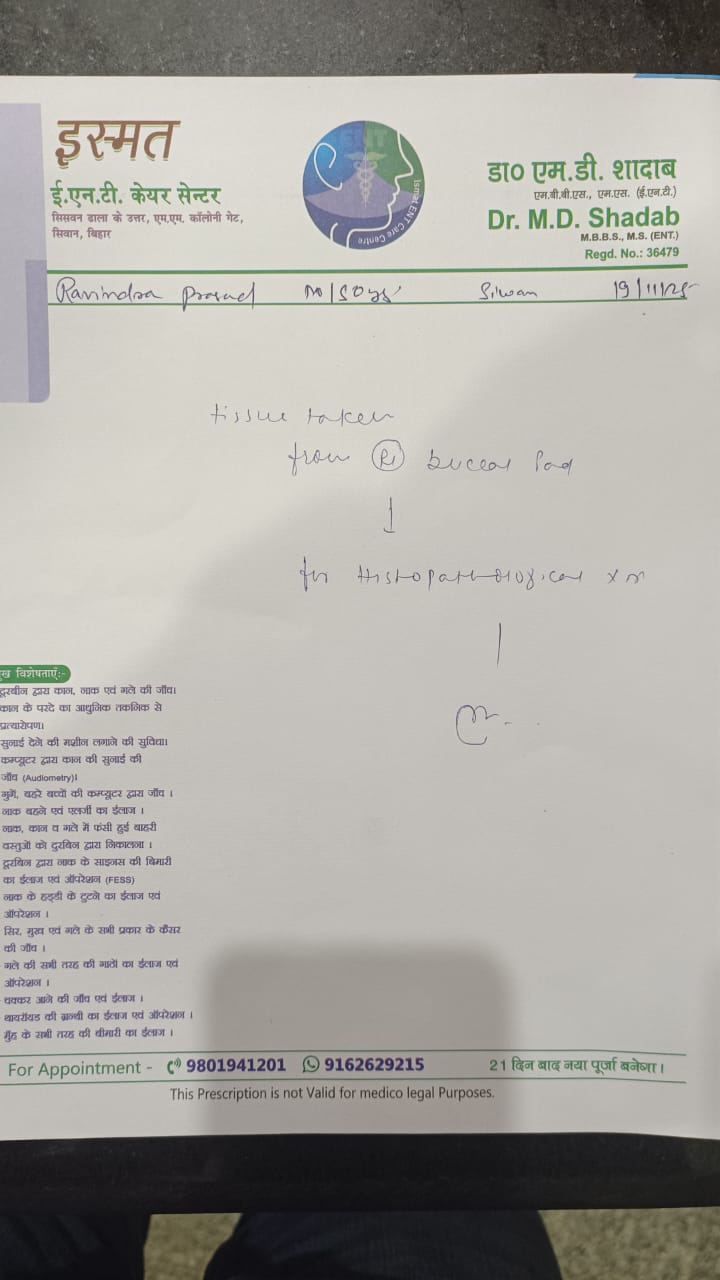 इस्मत
ई.एन.टी. केयर सेन्टर
सिसवन ढाला के उत्तर, एम.एम. कॉलोनी गेट,
सिवान, बिहार
ENT
Ismat ENT Care Centre
डा० एम.डी. शादाब
एम.बी.बी.एस., एम.एस. (ई.एन.टी.)
Dr. M.D. Shadab
M.B.B.S., M.S. (ENT.)
Regd. No.: 36479
Ravindra Prasad M/50ys Siwan 19/11/25
tissue taken
from Rt buccal Pad
for Histopathological xn
ख विशेषताएँ:-
दूरबीन द्वारा कान, नाक एवं गले की जाँच।
कान के परदे का आधुनिक तकनिक से
प्रत्यारोपण।
सुनाई देने की मशीन लगाने की सुविधा।
कम्प्यूटर द्वारा कान की सुनाई की
जाँच (Audiometry)।
गुगें, बहरे बच्चों की कम्प्यूटर द्वारा जाँच ।
नाक बहने एवं एलर्जी का ईलाज ।
नाक, कान व गले में फंसी हुई बाहरी
वस्तुओं को दुरबिन द्वारा निकालना ।
दूरबिन द्वारा नाक के साइनस की बिमारी
का ईलाज एवं ऑपरेशन (FESS)
नाक के हड्डी के टुटने का ईलाज एवं
ऑपरेशन ।
सिर, मुख एवं गले के सभी प्रकार के कैंसर
की जाँच ।
गले की सभी तरह की गाठों का ईलाज एवं
ऑपरेशन ।
चक्कर आने की जाँच एवं ईलाज ।
थायरॉयड की ग्रन्थी का ईलाज एवं ऑपरेशन ।
मुँह के सभी तरह की बीमारी का ईलाज ।
For Appointment - 9801941201 9162629215 21 दिन बाद नया पूर्जा बनेगा।
This Prescription is not Valid for medico legal Purposes.